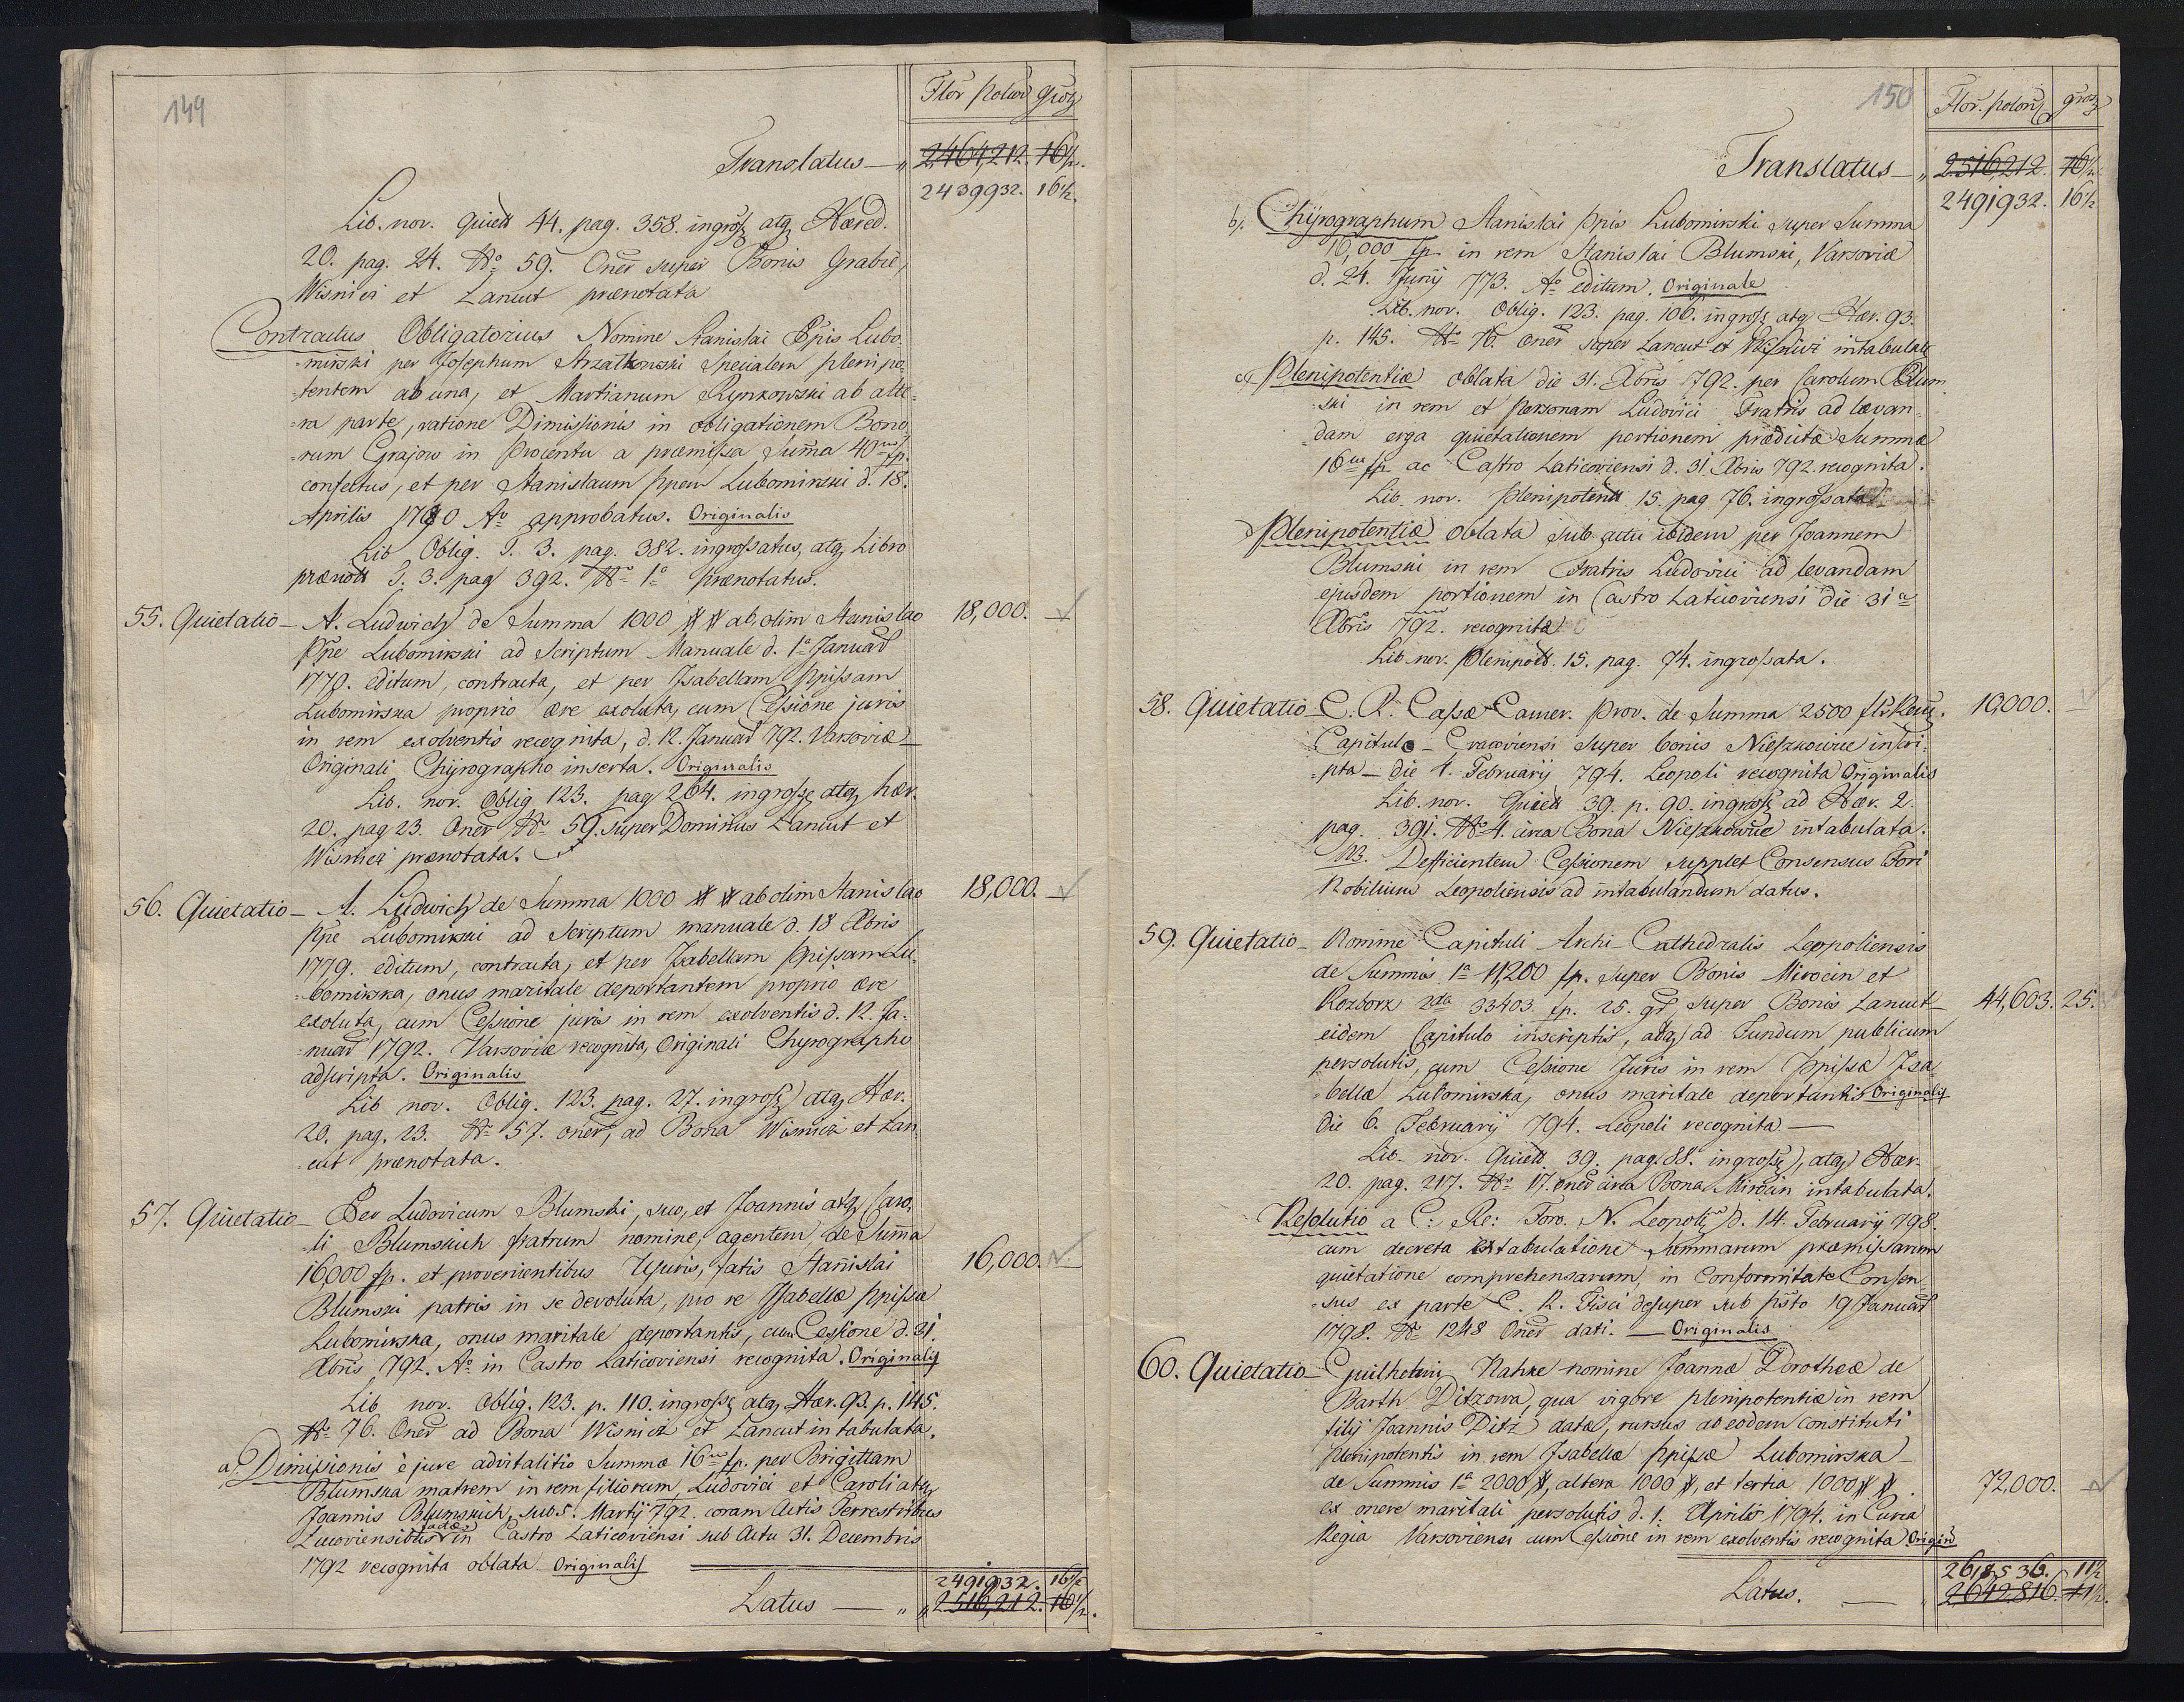 149
Flor polon grosz
Translatus — „ 2,464,212. 16½.
2439932. 16½.
Lib. nov. Quiett 44. pag. 358. ingross atq Hæred.
20. pag. 24. No 59. Oner super Bonis Grabie,
Wisnicz et Lancut prænotata
Contractus Obligatorius Nomine Stanislai Ppis Lubo-
-mirski per Josephum Strzalkowski Specialem plenipo-
-tentem ab una, et Martianum Rynkowski ab alte-
-ra parte, ratione Dimissionis in obligationem Bono-
-rum Grajow in Procentu a præmissa Summa 40 m fp.
confectus, et per Stanislaum Ppem Lubomirski d. 18.
Aprilis 1780 Ao approbatus. Originalis
Lib Oblig. T. 3. pag. 382. ingrossatus, atq Libro
prænott T. 3. pag 392. No 1o prænotatus.
55. Quietatio — A. Ludwich de Summa 1000 ## ab olim Stanislao 18,000. —
Ppe Lubomirski ad Scriptum Manuale d. 1a Januar
1779. editum, contracta, et per Isabellam Ppissam
Lubomirska proprio ære exoluta, cum Cessione juris
in rem exolventis recognita, d. 12. Januar 792. Varsoviæ —
Originali Chyrographo inserta. Originalis
Lib. nov. Oblig 123. pag 264. ingross atq hær.
20. pag 23. Oner No 59. super Dominus Lancut et
Wisnicz prænotata.
56. Quietatio — A. Ludwich de Summa 1000 ## ab olim Stanislao 18,000. —
Ppe Lubomirski ad Scriptum manuale d. 18 Xbris
1779. editum, contracta, et per Isabellam Ppissam Lu-
-bomirska, onus maritale deportantem proprio ære
exoluta, cum Cessione juris in rem exolventis d. 12. Ja-
-nuar 1792. Varsoviæ recognita, Originali Chyrographo
adscripta. Originalis
Lib nov. Oblig. 123. pag. 27. ingross atq Hær.
20. pag. 23. No 57. oner, ad Bona Wisnicz et Lan-
-cut prænotata.
57. Quietatio — Per Ludovicum Blumski, suo, et Joannis atq Caro-
-li Blumskich fratrum nomine, agentem, de Summa
16,000 fp. et provenientibus Usuris, fatis Stanislai 16,000. —
Blumski patris in se devoluta, pro re Isabellæ Ppissæ
Lubomirska, onus maritale deportantis, cum Cessione d. 31.
Xbris 792. Ao in Castro Laticoviensi recognita. Originalis
Lib nov. Oblig. 123. p. 110. ingross atq Hær. 93. p. 145.
No 76. Oner ad Bona Wisnicz et Lancut intabulata.
a). Dimissionis è jure advitalitio Summæ 16 m fp. per Brigittam
Blumska matrem in rem filiorum, Ludovici et Caroli atq
Joannis Blumskich, sub 5. Martij 792. coram Actis Terrestribus
Lucoviensibus in Castro Laticoviensi sub Actu 31. Decembris
1792 recognita oblata Originalis
2491932. 16½
Latus — „ „ 2516,212. 16½.
150
Flor. polon grosz
Translatus — „ 2516212. 16½.
2491932. 16½
b). Chyrographum Stanislai Ppis Lubomirski super Summa
16,000 fp. in rem Stanislai Blumski, Varsoviæ
d. 24. Junij 773. Ao editum. Originale
Lib. nov. Oblig. 123. pag. 106. ingross atq Hær. 93.
p. 145. No 76. oner super Lancut et Wisnicz intabulat
c) Plenipotentiæ oblata die 31. Xbris 792. per Carolum Blum-
-ski in rem et personam Ludovici Fratris ad levan-
-dam erga quietationem portionem prædictæ Summæ
16 m fp. ac Castro Laticoviensi d. 31 Xbris 792. recognita.
Lib. nov. Plenipotentt 15. pag 76. ingrossata
d Plenipotentiæ oblata sub actu ibidem per Joannem
Blumski in rem Fratris Ludovici ad levandam
ejusdem portionem in Castro Laticoviensi die 31 a
Xbris 792. recognita
Lib. nov. Plenipott. 15. pag. 74. ingrossata.
58. Quietatio — C. R. Cassæ Camer. Prov. de Summa 2500 fl Rens. 10,000.
Capitulo — Cracoviensi super bonis Nieszkowice inscri-
-pta — die 1. Februarij 794. Leopoli recognita Originalis
Lib. nov. Quiett 39. p. 90. ingross ad Hær. 2.
pag. 391. No 4. circa Bona Nieszkowice intabulata.
NB. Defficientem Cessionem supplet Consensus Fori
Nobilium Leopoliensis ad intabulandum datus.
59. Quietatio — Nomine Capituli Archi-Cathedralis Leopoliensis
de Summis 1a 11,200 fp. super Bonis Mirocin et
Rozborz 2da 33403. fp. 25. gr, super Bonis Lancut — 44,603. 25.
eidem Capitulo inscriptis, atq ad Fundum publicum
persolutis, cum Cessione Juris in rem Ppissæ Isa-
-bellæ Lubomirska, onus maritale deportantis Originalis
die 6. Februarij 794. Leopoli recognita —
Lib. nov. Quiett 39. pag. 88. ingross), atq Hær.
20. pag. 217. No 17. oner circa Bona Mirocin intabulata.
Resolutio a C: Re: Foro. N. Leopoli d. 14. Februarij 798.
cum decreta extabulatione Summarum præmissarum
quietatione comprehensarum, in Conformitate Consen-
-sus ex parte C. R. Fisci desuper sub psto 19 Januar
1798. No 1248 Oner dati. — Originalis
60. Quietatio — Guilhelmi Nahke nomine Joannæ Dorotheæ de
Barth Ditzowa, qua vigore plenipotentiæ in rem
filij Joannis Ditz datæ, rursus ab eodem constituti
plenipotentis in rem Isabellæ Ppissæ Lubomirska —
de Summis 1a 2000 #, altera 1000 #, et tertia 1000 ## . 72,000. —
ex onere maritali persolutis d. 1. Aprilis 1794. in Curia
Regia Varsoviensi cum Cessione in rem exolventis recognita Origin
2618536. 11½
Latus. — „ 2,642,816. 11½.